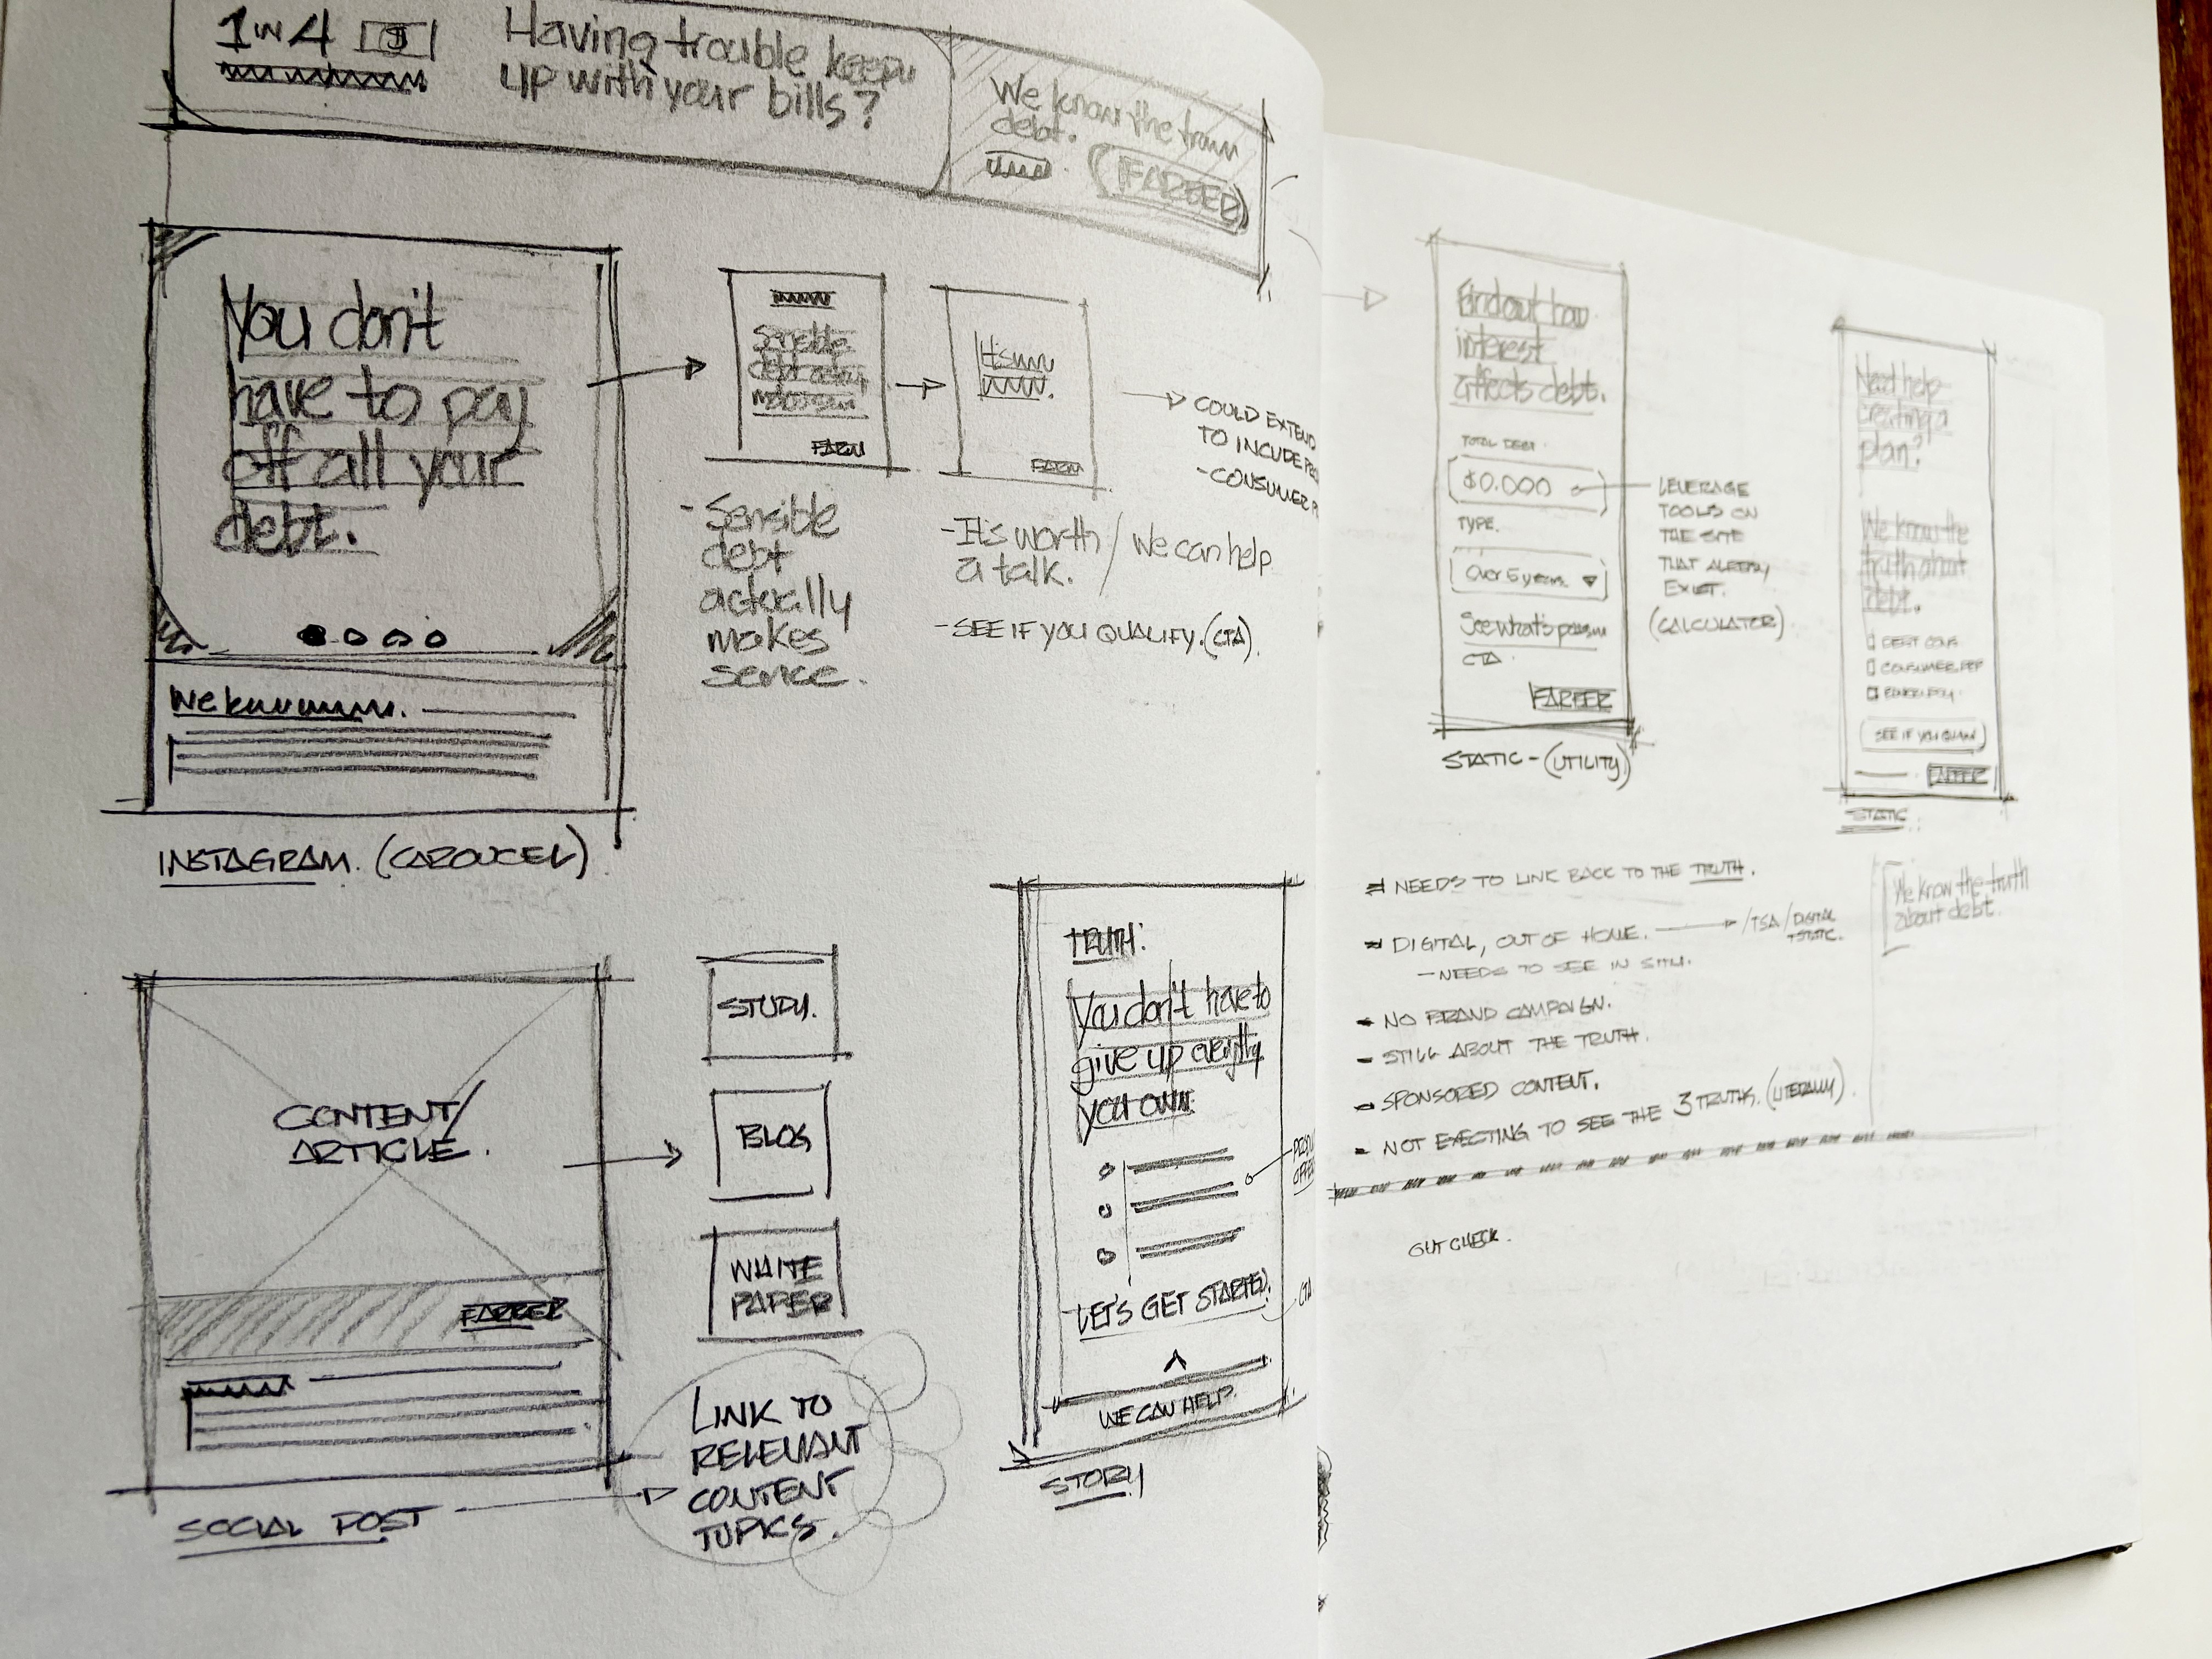 1 IN 4 $
Having trouble keep
up with your bills?
We know the
debt.
FARBER
You don't
have to pay
off all your
debt.
INSTAGRAM. (CAROUCEL)
Sensible
debt
makes
FARB
- Sensible
debt
actually
makes
sence.
It's
FARB
- It's worth / we can help
a talk.
- SEE IF YOU QUALIFY. (CTA).
COULD EXTEND
TO INCLUDE
- CONSUMER P
CONTENT/
ARTICLE.
FARBER
SOCIAL POST
STUDY.
BLOG
WHITE
PAPER
LINK TO
RELEVANT
CONTENT
TOPICS.
TRUTH:
You don't have to
give up everything
you own.
LET'S GET STARTED.
CTA
WE CAN HELP.
STORY
Find out how
interest
affects debt.
TOTAL DEBT.
$0.000
TYPE.
Over 5 years
See what's
CTA.
FARBER
STATIC - (UTILITY)
LEVERAGE
TOOLS ON
THE SITE
THAT ALREADY
EXIST.
(CALCULATOR)
Need help
creating a
plan?
We know the
truth about
debt.
DEBT CONS.
CONSUMER PRP
SEE IF YOU QUALI
FARBER
STATIC.
- NEEDS TO LINK BACK TO THE TRUTH.
- DIGITAL, OUT OF HOME. /TSA/DIGITAL
STATIC.
- NEEDS TO SEE IN SITU.
- NO BRAND CAMPAIGN.
- STILL ABOUT THE TRUTH.
- SPONSORED CONTENT.
- NOT EXECTING TO SEE THE 3 TRUTHS. (LITERALLY).
We know the truth
about debt.
GUT CHECK.